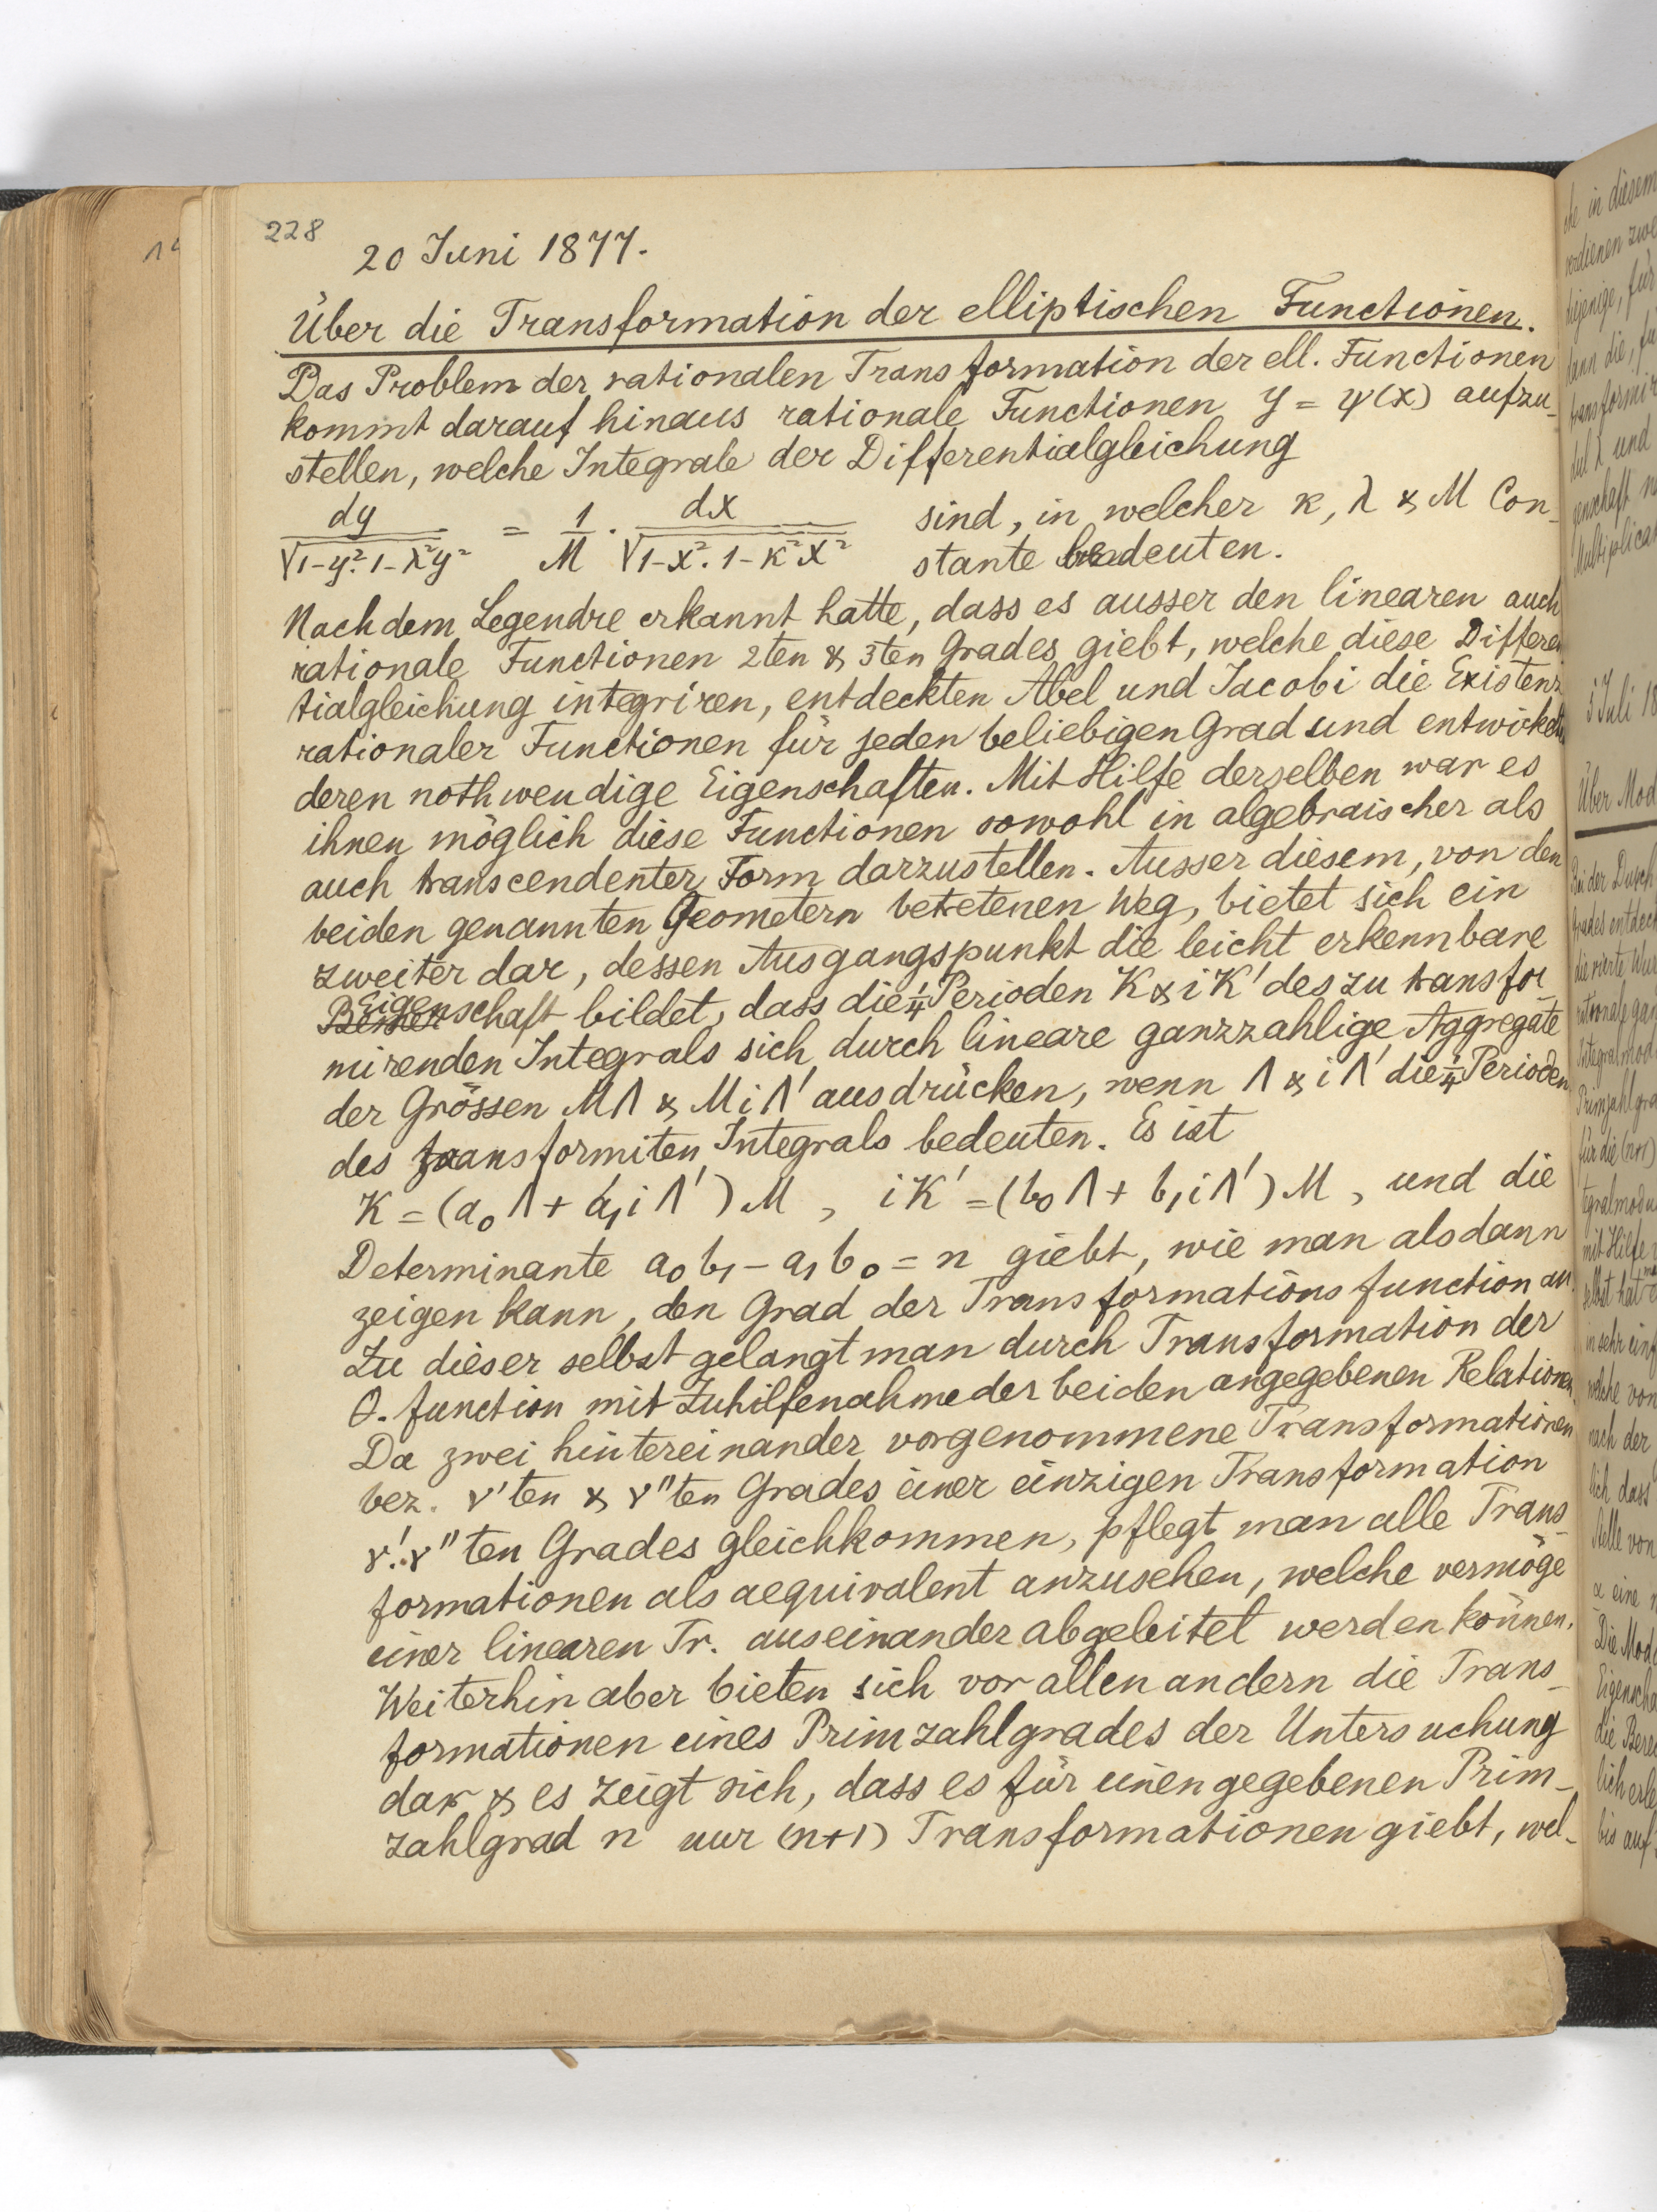 228
20 Juni 1877.
Über die Transformation der elliptischen Functionen.
Das Problem der rationalen Transformation der ell. Functionen
kommt darauf hinaus rationale Functionen y = ψ(x) aufzu-
stellen, welche Integrale der Differentialgleichung
dy / √1-y².1-λ²y² = 1/M · dx / √1-x².1-κ²x² sind, in welcher κ, λ & M Con-
stante bedeuten.
Nachdem Legendre erkannt hatte, dass es ausser den linearen auch
rationale Functionen 2ten & 3ten Grades giebt, welche diese Differen
tialgleichung integriren, entdeckten Abel und Jacobi die Existenz
rationaler Functionen für jeden beliebigen Grad und entwickelten
deren nothwendige Eigenschaften. Mit Hilfe derselben war es
ihnen möglich diese Functionen sowohl in algebraischer als
auch transcendenter Form darzustellen. Ausser diesem, von den
beiden genannten Geometern betretenen Weg, bietet sich ein
zweiter dar, dessen Ausgangspunkt die leicht erkennbare
Eigenschaft bildet, dass die ¼ Perioden K & iK' des zu transfor
mirenden Integrals sich durch lineare ganzzahlige Aggregate
der Grössen MΛ & MiΛ' ausdrücken, wenn Λ & iΛ' die ¼ Perioden
des transformiten Integrals bedeuten. Es ist
K = (a₀Λ + a₁iΛ')M , iK' = (b₀Λ + b₁iΛ')M , und die
Determinante a₀b₁ - a₁b₀ = n giebt, wie man alsdann
zeigen kann, den Grad der Transformationsfunction an.
Zu dieser selbst gelangt man durch Transformation der
Θ. function mit Zuhilfenahme der beiden angegebenen Relationen.
Da zwei hintereinander vorgenommene Transformationen
bez. ν'ten & ν"ten Grades einer einzigen Transformation
ν'.ν"ten Grades gleichkommen, pflegt man alle Trans-
formationen als aequivalent anzusehen, welche vermöge
einer linearen Tr. auseinander abgeleitet werden können.
Weiterhin aber bieten sich vor allen andern die Trans-
formationen eines Primzahlgrades der Untersuchung
dar & es zeigt sich, dass es für einen gegebenen Prim-
zahlgrad n nur (n+1) Transformationen giebt, wel-